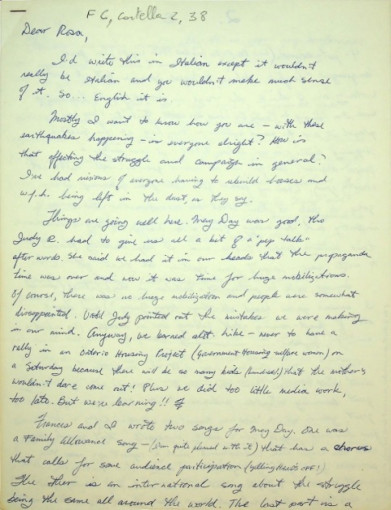 F 6, Cartella 2, 38
Dear Rosa,
I'd write this in Italian except it wouldn't
really be Italian and you wouldn't make much sense
of it. So... English it is.
Mostly I want to know how you are — with these
earthquakes happening — is everyone alright? How is
that effecting the struggle and campaign in general?
I've had visions of everyone having to rebuild houses and
w.f.h. being left in the dust, as they say.
Things are going well here. May Day was good, tho
Judy R. had to give us all a bit of a "pep talk"
after words. She said we had it in our heads that the propaganda
time was over and now it was time for huge mobilizations.
Of course, there was no huge mobilization and people were somewhat
disappointed. Until Judy pointed out the mistakes we were making
in our mind. Anyway, we learned alot. Like — never to have a
rally in an Ontario Housing Project (government housing, welfare women) on
a Saturday because there will be so many kids (hundreds) that the mothers
wouldn't dare come out! Plus we did too little media work,
too late. But we're learning!!
Frances and I wrote two songs for May Day. One was
a Family Allowance song — (I'm quite pleased with it) that has a chorus
that calls for some audience participation (yelling that's ours!)
The other is an international song about the struggle
being the same all around the world. The last part is a